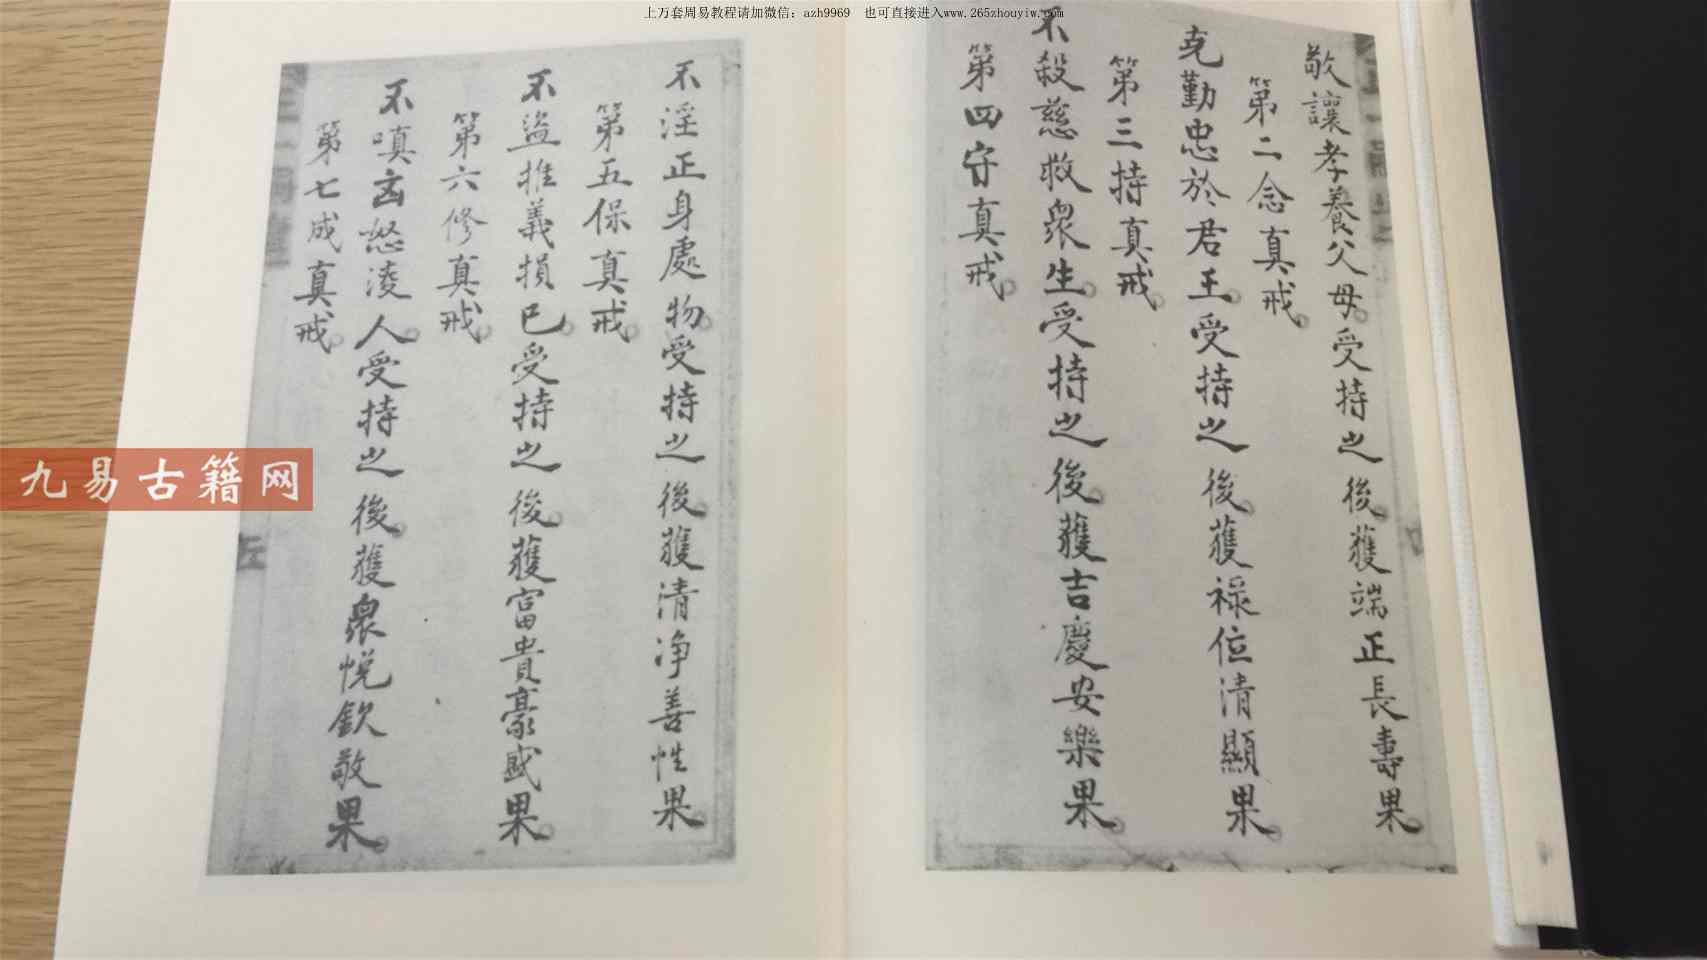 上万套周易教程请加微信：azh9969 也可直接进入www.265zhouyiw.com
敬讓孝養父母受持之後獲端正長壽果
第二念真戒
克勤忠於君王受持之後獲祿位清顯果
第三持真戒
不殺慈救衆生受持之後獲吉慶安樂果
第四守真戒
不淫正身處物受持之後獲清净善性果
第五保真戒
不盜推義損已受持之後獲富貴豪盛果
第六修真戒
不嗔凶怒淩人受持之後獲衆悅欽敬果
第七成真戒
九易古籍网